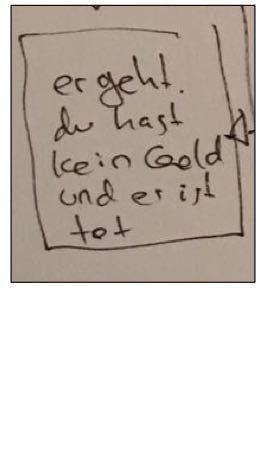 er geht.
du hast
kein Gold
und er ist
tot